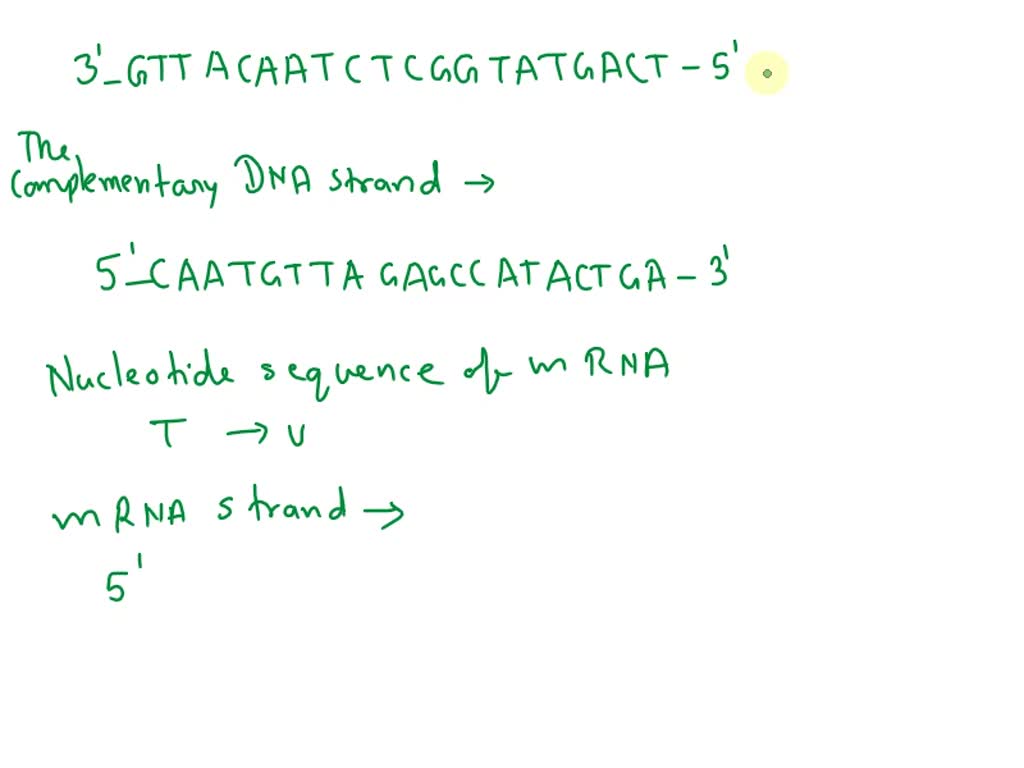 3'-GTT ACAATCTCGG TATGACT-5'
The
Complementary DNA strand →
5'-CAATGTTA GAGCCATACTGA-3'
Nucleotide sequence of mRNA
T → U
mRNA strand →
5'